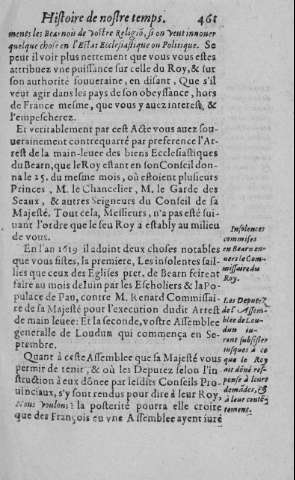 Histoire de nostre temps. 461
ments les Bearnois de vostre Religiō, si on veut innouer
quelque chose en l'Estat Ecclesiastique ou Politique. Se
peut il voir plus nettement que vous vous estes
attribuez vne puissance sur celle du Roy, & sur
son authorité souueraine, en disant, Que s'il
veut agir dans les pays de son obeyssance, hors
de France mesme, que vous y auez interest, &
l'empescherez.
Et veritablement par cest Acte vous auez sou-
uerainement contrequarré par preference l'Ar-
rest de la main-leuee des biens Ecclesiastiques
du Bearn, que le Roy estant en son Conseil don-
na le 25. du mesme mois, où estoient plusieurs
Princes, M. le Chancelier, M. le Garde des
Seaux, & autres Seigneurs du Conseil de sa
Majesté. Tout cela, Messieurs, n'a pas esté sui-
uant l'ordre que le feu Roy a estably au milieu
de vous.
En l'an 1619 il aduint deux choses notables
que vous fistes, la premiere, Les insolentes sail-
lies que ceux des Eglises pret. de Bearn feirent
faire au mois de Iuin par les Escholiers & la Po-
pulace de Pau, contre M. Renard Commissai-
re de sa Majesté pour l'execution dudit Arrest
de main leuee: Et la seconde, vostre Assemblee
generalle de Loudun qui commença en Se-
ptembre.
Quant à ceste Assemblee que sa Majesté vous
permit de tenir, & où les Deputez selon l'in-
struction à eux dōnee par lesdits Conseils Pro-
uinciaux, s'y sont rendus pour dire à leur Roy,
Nous voulons: la posterité pourra elle croire
que des François en vne Assemblee ayent iuré
Insolences
commises
en Bearn en-
uers le Com-
missaire du
Roy.
Les Deputez
de l'Assem-
blee de Lou-
dun iu-
rent subsister
iusques à ce
que le Roy
ait dōné res-
pense à leurs
demādes, &
à leur contē-
tement.